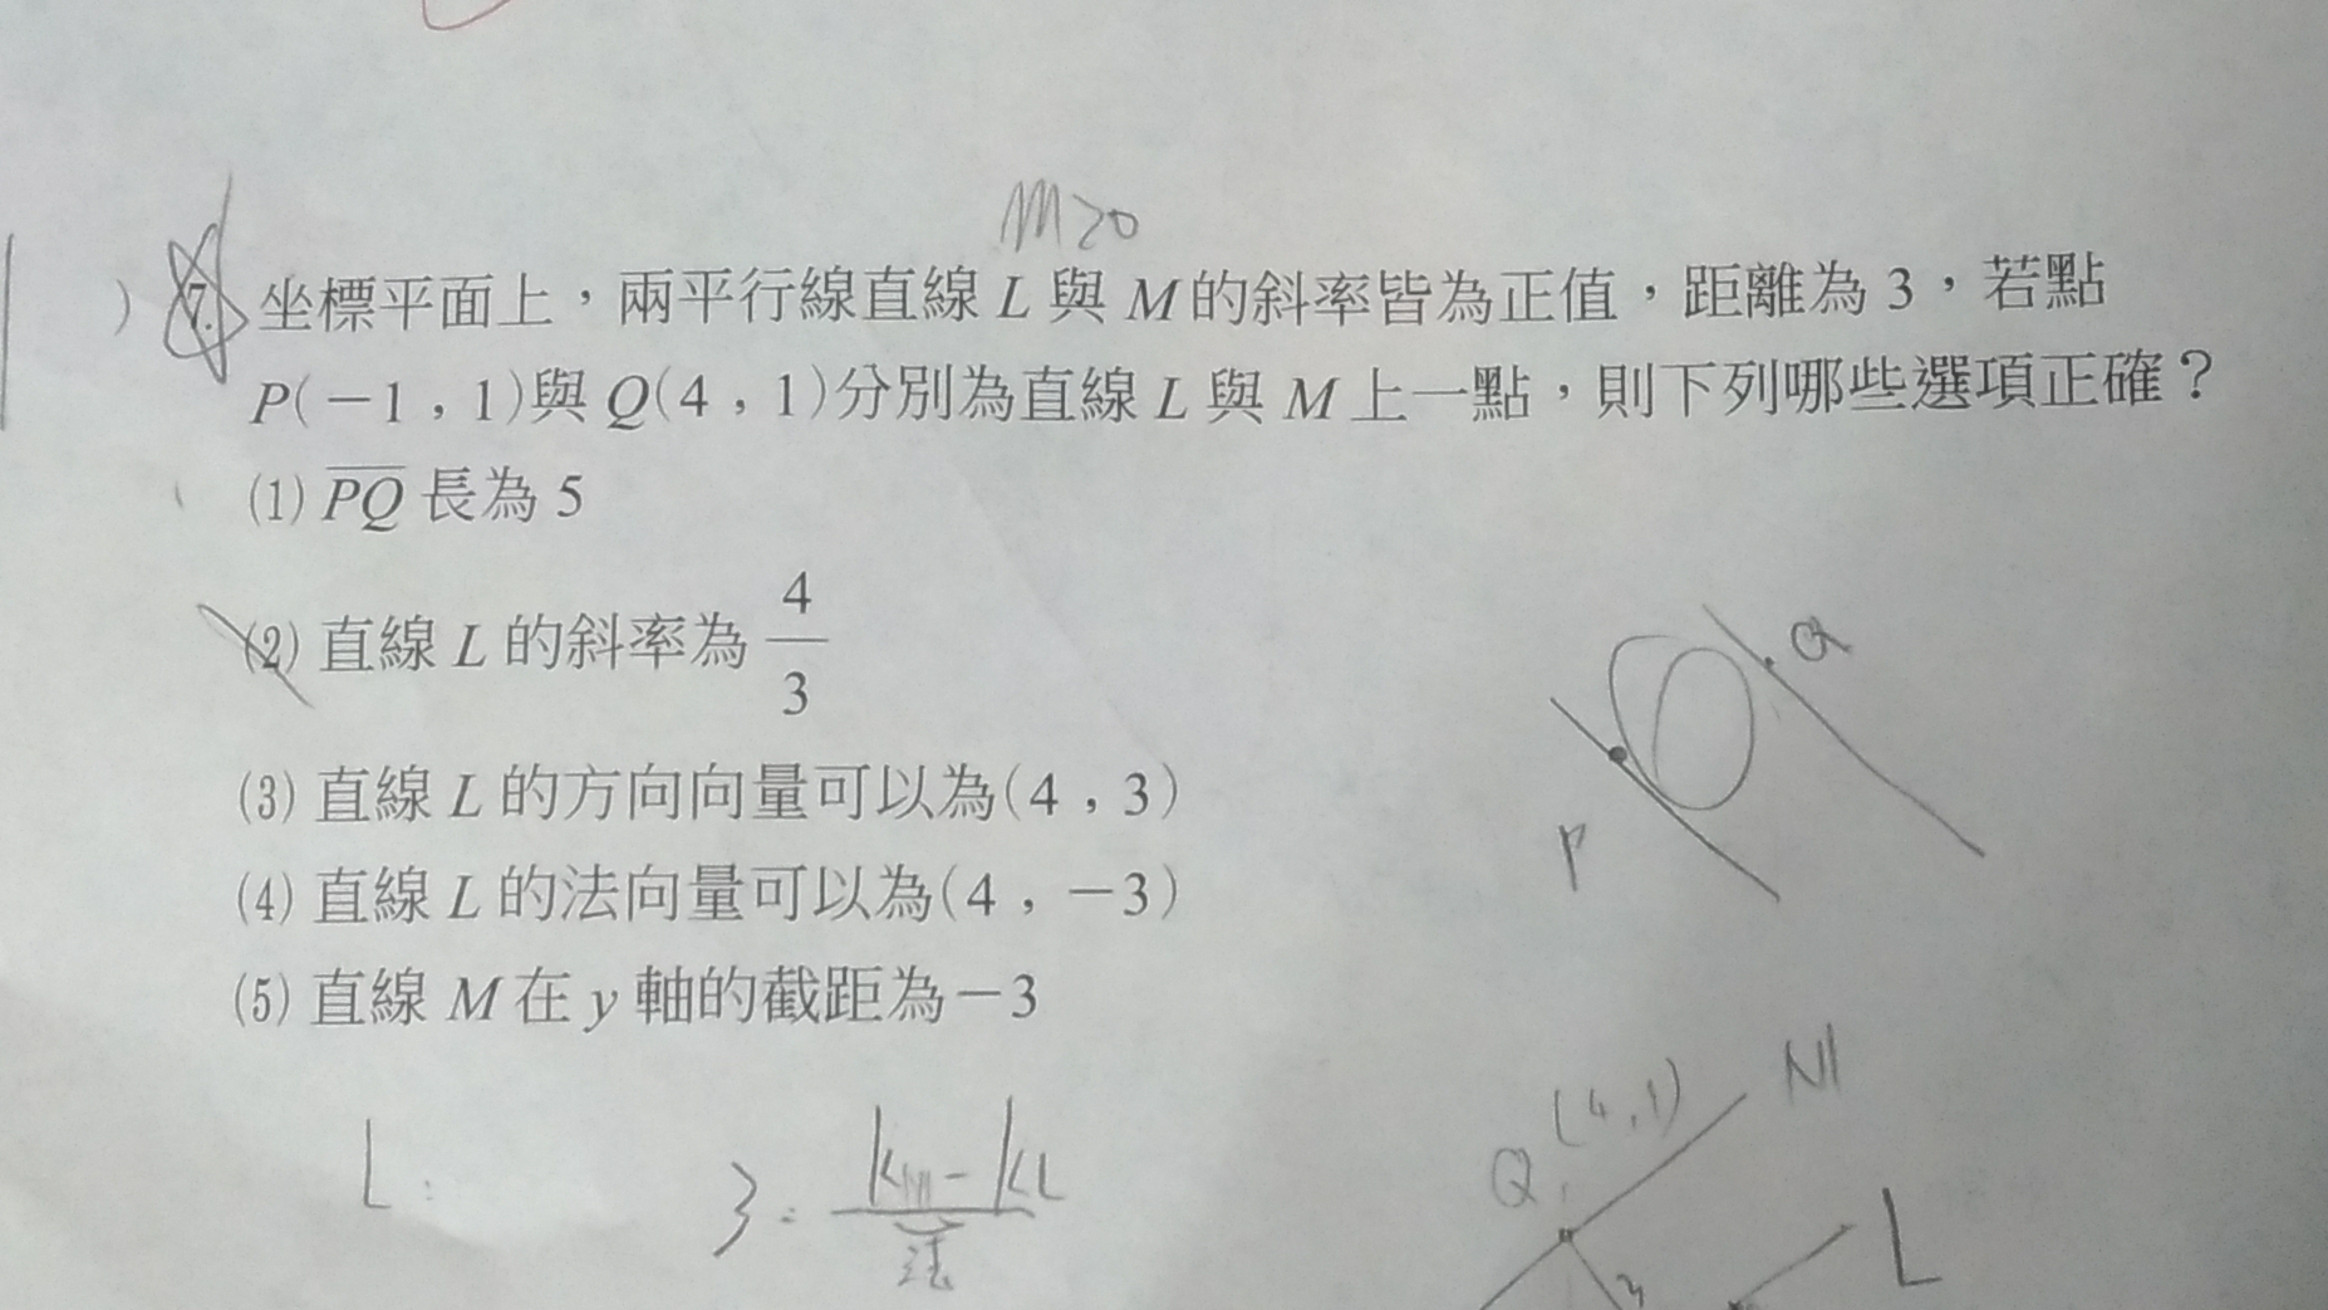 m>0
) 7. 坐標平面上，兩平行線直線 L 與 M 的斜率皆為正值，距離為 3，若點
P(－1，1)與 Q(4，1)分別為直線 L 與 M 上一點，則下列哪些選項正確？
(1) PQ 長為 5
(2) 直線 L 的斜率為 4/3
(3) 直線 L 的方向向量可以為(4，3)
(4) 直線 L 的法向量可以為(4，－3)
(5) 直線 M 在 y 軸的截距為－3
Q
P
L:
3 = (kM - kL)/法
Q(4,1)
M
L
3